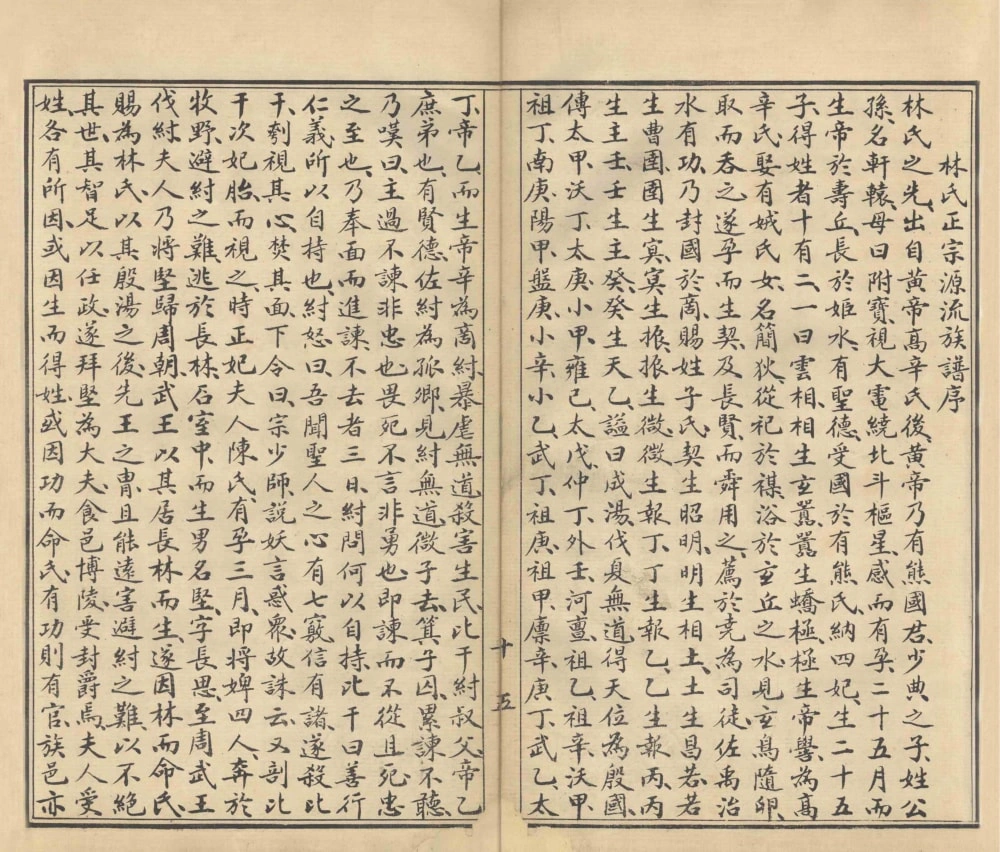 林氏正宗源流族譜序
林氏之先、出自黃帝高辛氏後、黃帝乃有熊國君、少典之子、姓公
孫、名軒轅、母曰附寶、視大電繞北斗樞星、感而有孕、二十五月而
生帝於壽丘、長於姬水、有聖德、受國於有熊氏、納四妃、生二十五
子、得姓者十有二、一曰雲相、相生玄囂、囂生蟜極、極生帝嚳、為高
辛氏、娶有娀氏女、名簡狄、從祀於禖、浴於玄丘之水、見玄鳥隨卵、
取而吞之、遂孕而生契、及長賢、而舜用之、薦於堯、為司徒、佐禹治
水有功、乃封國於商、賜姓子氏、契生昭明、明生相土、土生昌若、若
生曹圉、圉生冥、冥生振、振生微、微生報丁、丁生報乙、乙生報丙、丙
生主壬、壬生主癸、癸生天乙、謚曰成湯、伐夏無道、得天位、為殷國、
傳太甲、沃丁、太庚、小甲、雍己、太戊、仲丁、外壬、河亶、祖乙、祖辛、沃甲、
祖丁、南庚、陽甲、盤庚、小辛、小乙、武丁、祖庚、祖甲、廩辛、庚丁、武乙、太
十五
丁、帝乙、而生帝辛、為商紂、暴虐無道、殺害生民、比干紂叔父、帝乙
庶弟也、有賢德、佐紂為孤卿、見紂無道、微子去、箕子囚、累諫不聽、
乃嘆曰、主過不諫非忠也、畏死不言非勇也、即諫而不從且死、忠
之至也、乃奉面而進諫、不去者三日、紂問何以自持、比干曰善行
仁義所以自持也、紂怒曰、吾聞聖人之心有七竅、信有諸、遂殺比
干、刳視其心、焚其面、下令曰、宗少師說妖言惑眾、故誅云、又剖比
干次妃胎、而視之、時正妃夫人陳氏有孕三月、即將婢四人、奔於
牧野、避紂之難、逃於長林、石室中、而生男名堅、字長思、至周武王
伐紂、夫人乃將堅歸周朝、武王以其居長林而生、遂因林而命氏、
賜為林氏、以其殷湯之後、先王之冑、且能遠害避紂之難、以不絕
其世、其智足以任政、遂拜堅為大夫、食邑博陵、受封爵焉、夫人受
姓、各有所因、或因生而得姓、或因功而命氏、有功則有官、族邑亦